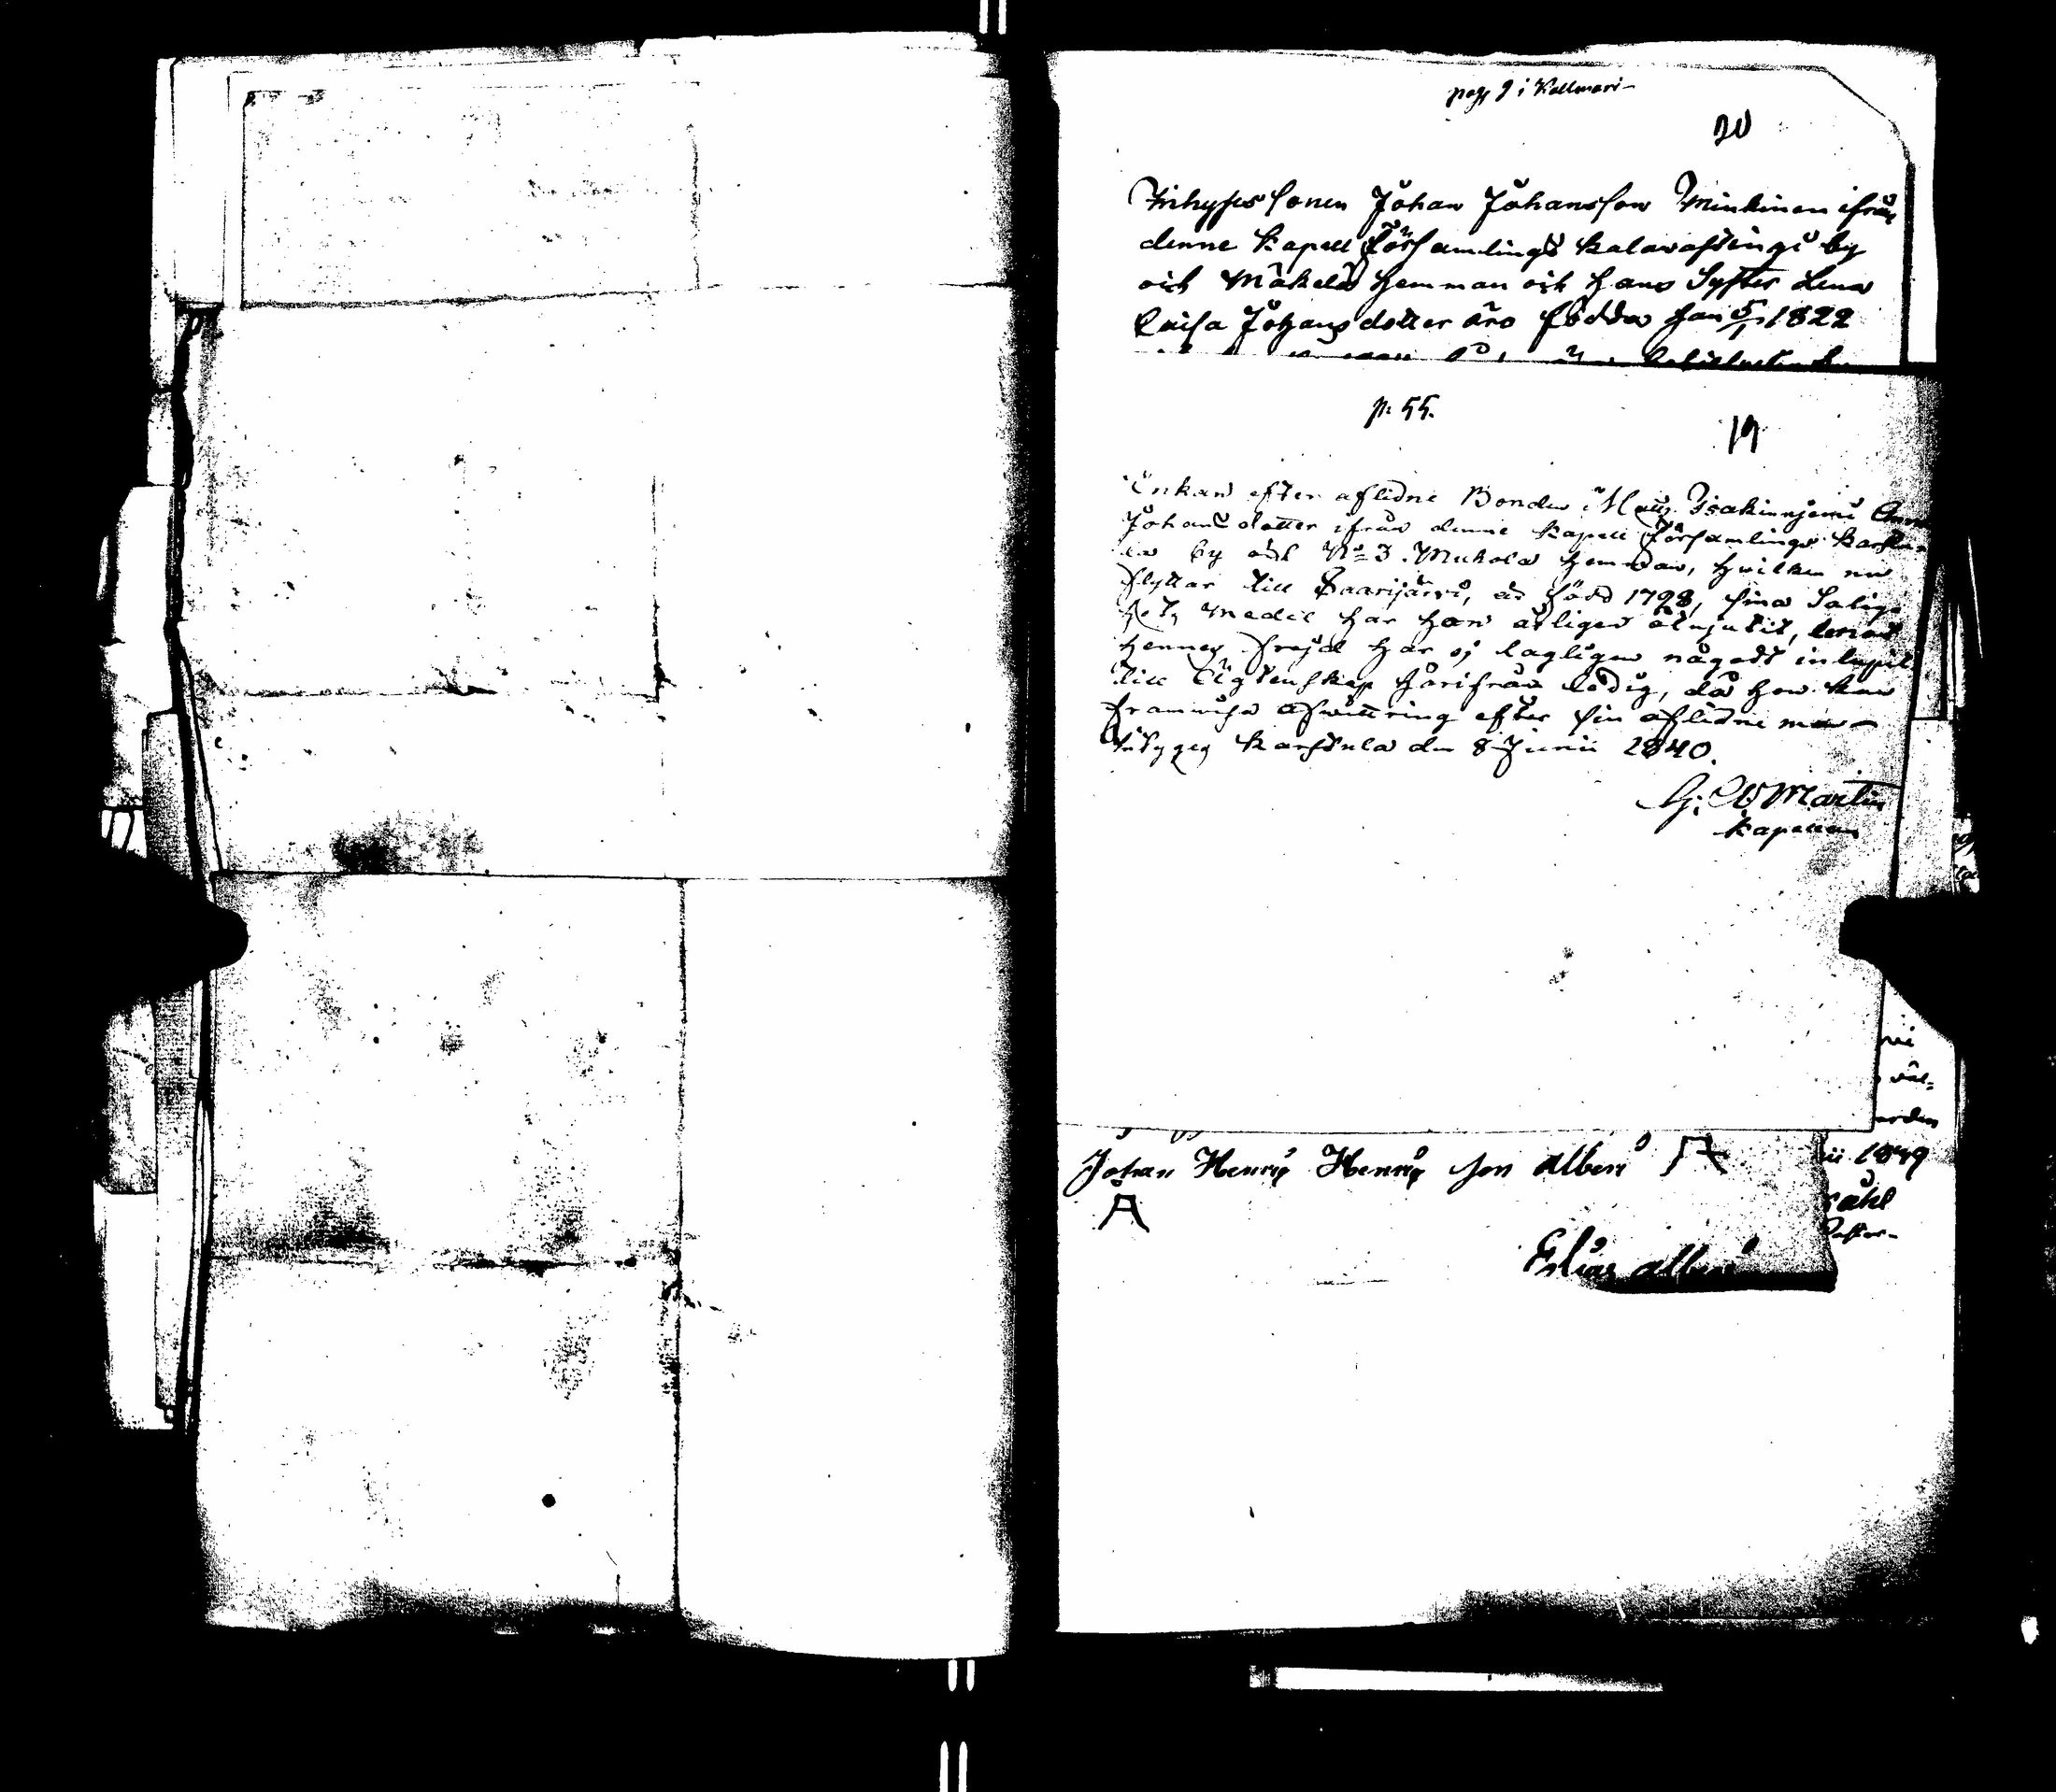 pag 9 i Kallmari
20
Inhyses Sonen Johan Johansson Minkinen ifrån
denne Kapell Församlings Kalavastingi by
och Mäkelä Hemman och Hans Syster Lena
Caisa Johansdotter äro födda han 5/1 1822
p. 55.
19
Enkan efter aflidne Bonden Matts Isakinnjemi Anna
Johansdotter ifrån denne Kapell Församlings Karstu-
la by och No 3. Mukola Hemman, hvilken nu
flyttar till Saarijärvi, är född 1798, sina Salig-
hets medel har hon årligen åtnjutit, emot
hennes frejd har ej lagligen något inlupit
till Ägtenskap härifrån ledig, då hon kan
framvisa afwittring efter sin aflidne man
Karstula den 8 Junii 1840.
G. W Martin
Kapellan
Johan Henric Henric Son Alberi A
A
Elias Alberi
1849